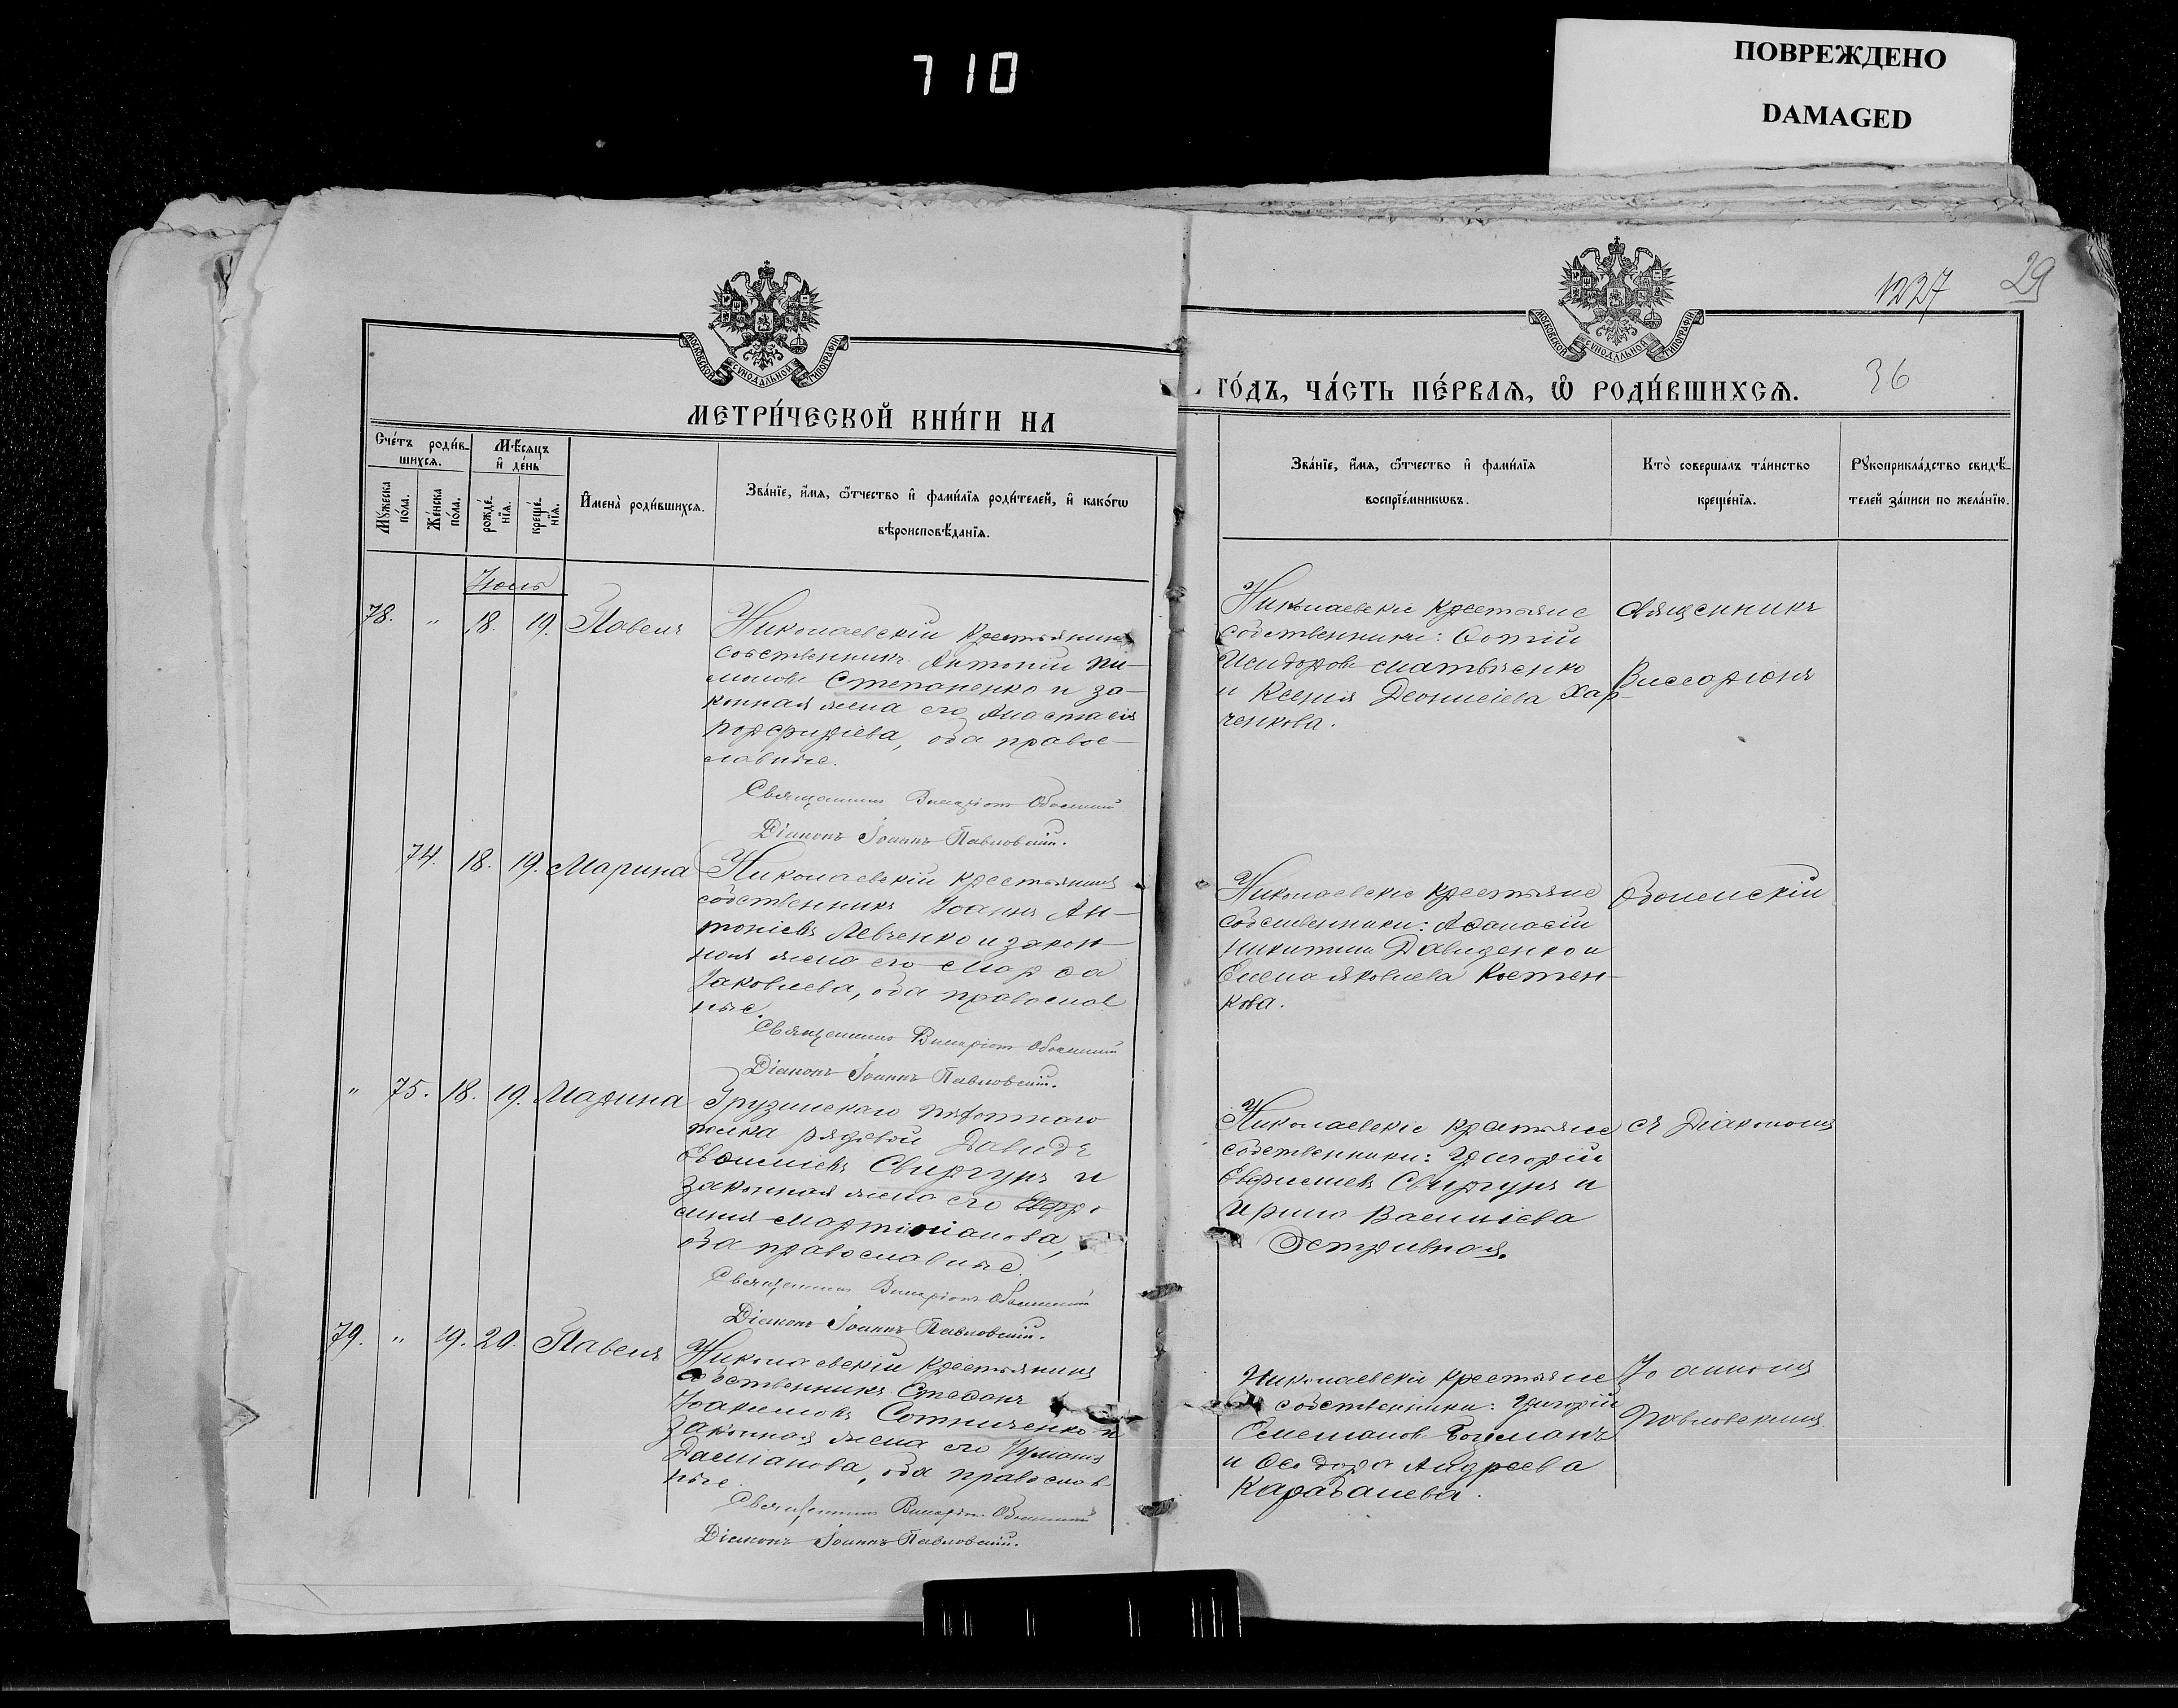 710
ПОВРЕЖДЕНО
DAMAGED
1227 29
36
МОСКОВСКОЙ СѴНОДАЛЬНОЙ ТИПОГРАФІИ
МОСКОВСКОЙ СѴНОДАЛЬНОЙ ТИПОГРАФІИ
МЕТРИ́ЧЕСКОЙ КНИ́ГИ НА
ГО́ДЪ, ЧА́СТЬ ПЕ́РВАѦ, Ѽ РОДИ́ВШИХСѦ.
Сче́тъ роди́в-
шихсѧ.
Мꙋ́жеска по́ла.
Же́нска по́ла.
Мѣ́сѧцъ и҆ де́нь
рожде́-нїѧ.
креще́-нїѧ.
И҆мена̀ роди́вшихсѧ.
Зва́нїе, и҆́мѧ, ѻ҆́тчество и҆ фами́лїѧ роди́телей, и҆ како́гѡ
вѣроисповѣ́данїѧ.
Зва́нїе, и҆́мѧ, ѻ҆́тчество и҆ фами́лїѧ
воспрїе́мникѡвъ.
Кто̀ соверша́лъ та́инство
креще́нїѧ.
Рꙋкоприкла́дство свидѣ́-
телей за́писи по жела́нїю.
78. " 18. 19. Павелъ
Николаевскій крестьянинъ
собственникъ Антоній
Степаненко и за-
конная жена его Анастасія
Порфиріева, оба правос-
лавные.
Священникъ Виссаріонъ
Діаконъ Іоаннъ Павловскій.
Николаевскіе крестьяне
собственники: Фотій
Исидоровъ Матвѣенко
и Ксенія Деонисіева Хар-
ченкова.
Священникъ
Виссаріонъ
74. 18. 19. Марина
Николаевскій крестьянинъ
собственникъ Іоаннъ Ан-
тоніевъ Левченко и закон-
ная жена его Марѳа
Іаковлева, оба православ
ные.
Священникъ Виссаріонъ
Діаконъ Іоаннъ Павловскій.
Николаевскіе крестьяне
собственники: Аѳанасій
Никитинъ Давиденко и
Елена Яковлева Костен-
кова.
" 75. 18. 19. Марина
Грузинскаго пѣхотнаго
полка рядовой Давидъ
Свиргунъ и
законная жена его Евфро
синія Мартиніанова,
оба православные.
Священникъ Виссаріонъ
Діаконъ Іоаннъ Павловскій.
Николаевскіе крестьяне
собственники: Григорій
Свиргунъ и
Ирина Василіева
Остривная.
съ Діакономъ
79. " 19. 20. Павелъ
Николаевскій крестьянинъ
собственникъ Стефанъ
Іоакимовъ Сотниченко и
законная жена его Іуліанія
Даміанова, оба православ-
ные.
Священникъ Виссаріонъ
Діаконъ Іоаннъ Павловскій.
Николаевскіе крестьяне
собственники: Григорій
и Ѳеодора Андреева
Карабанева.
Іоанномъ
Павловскимъ